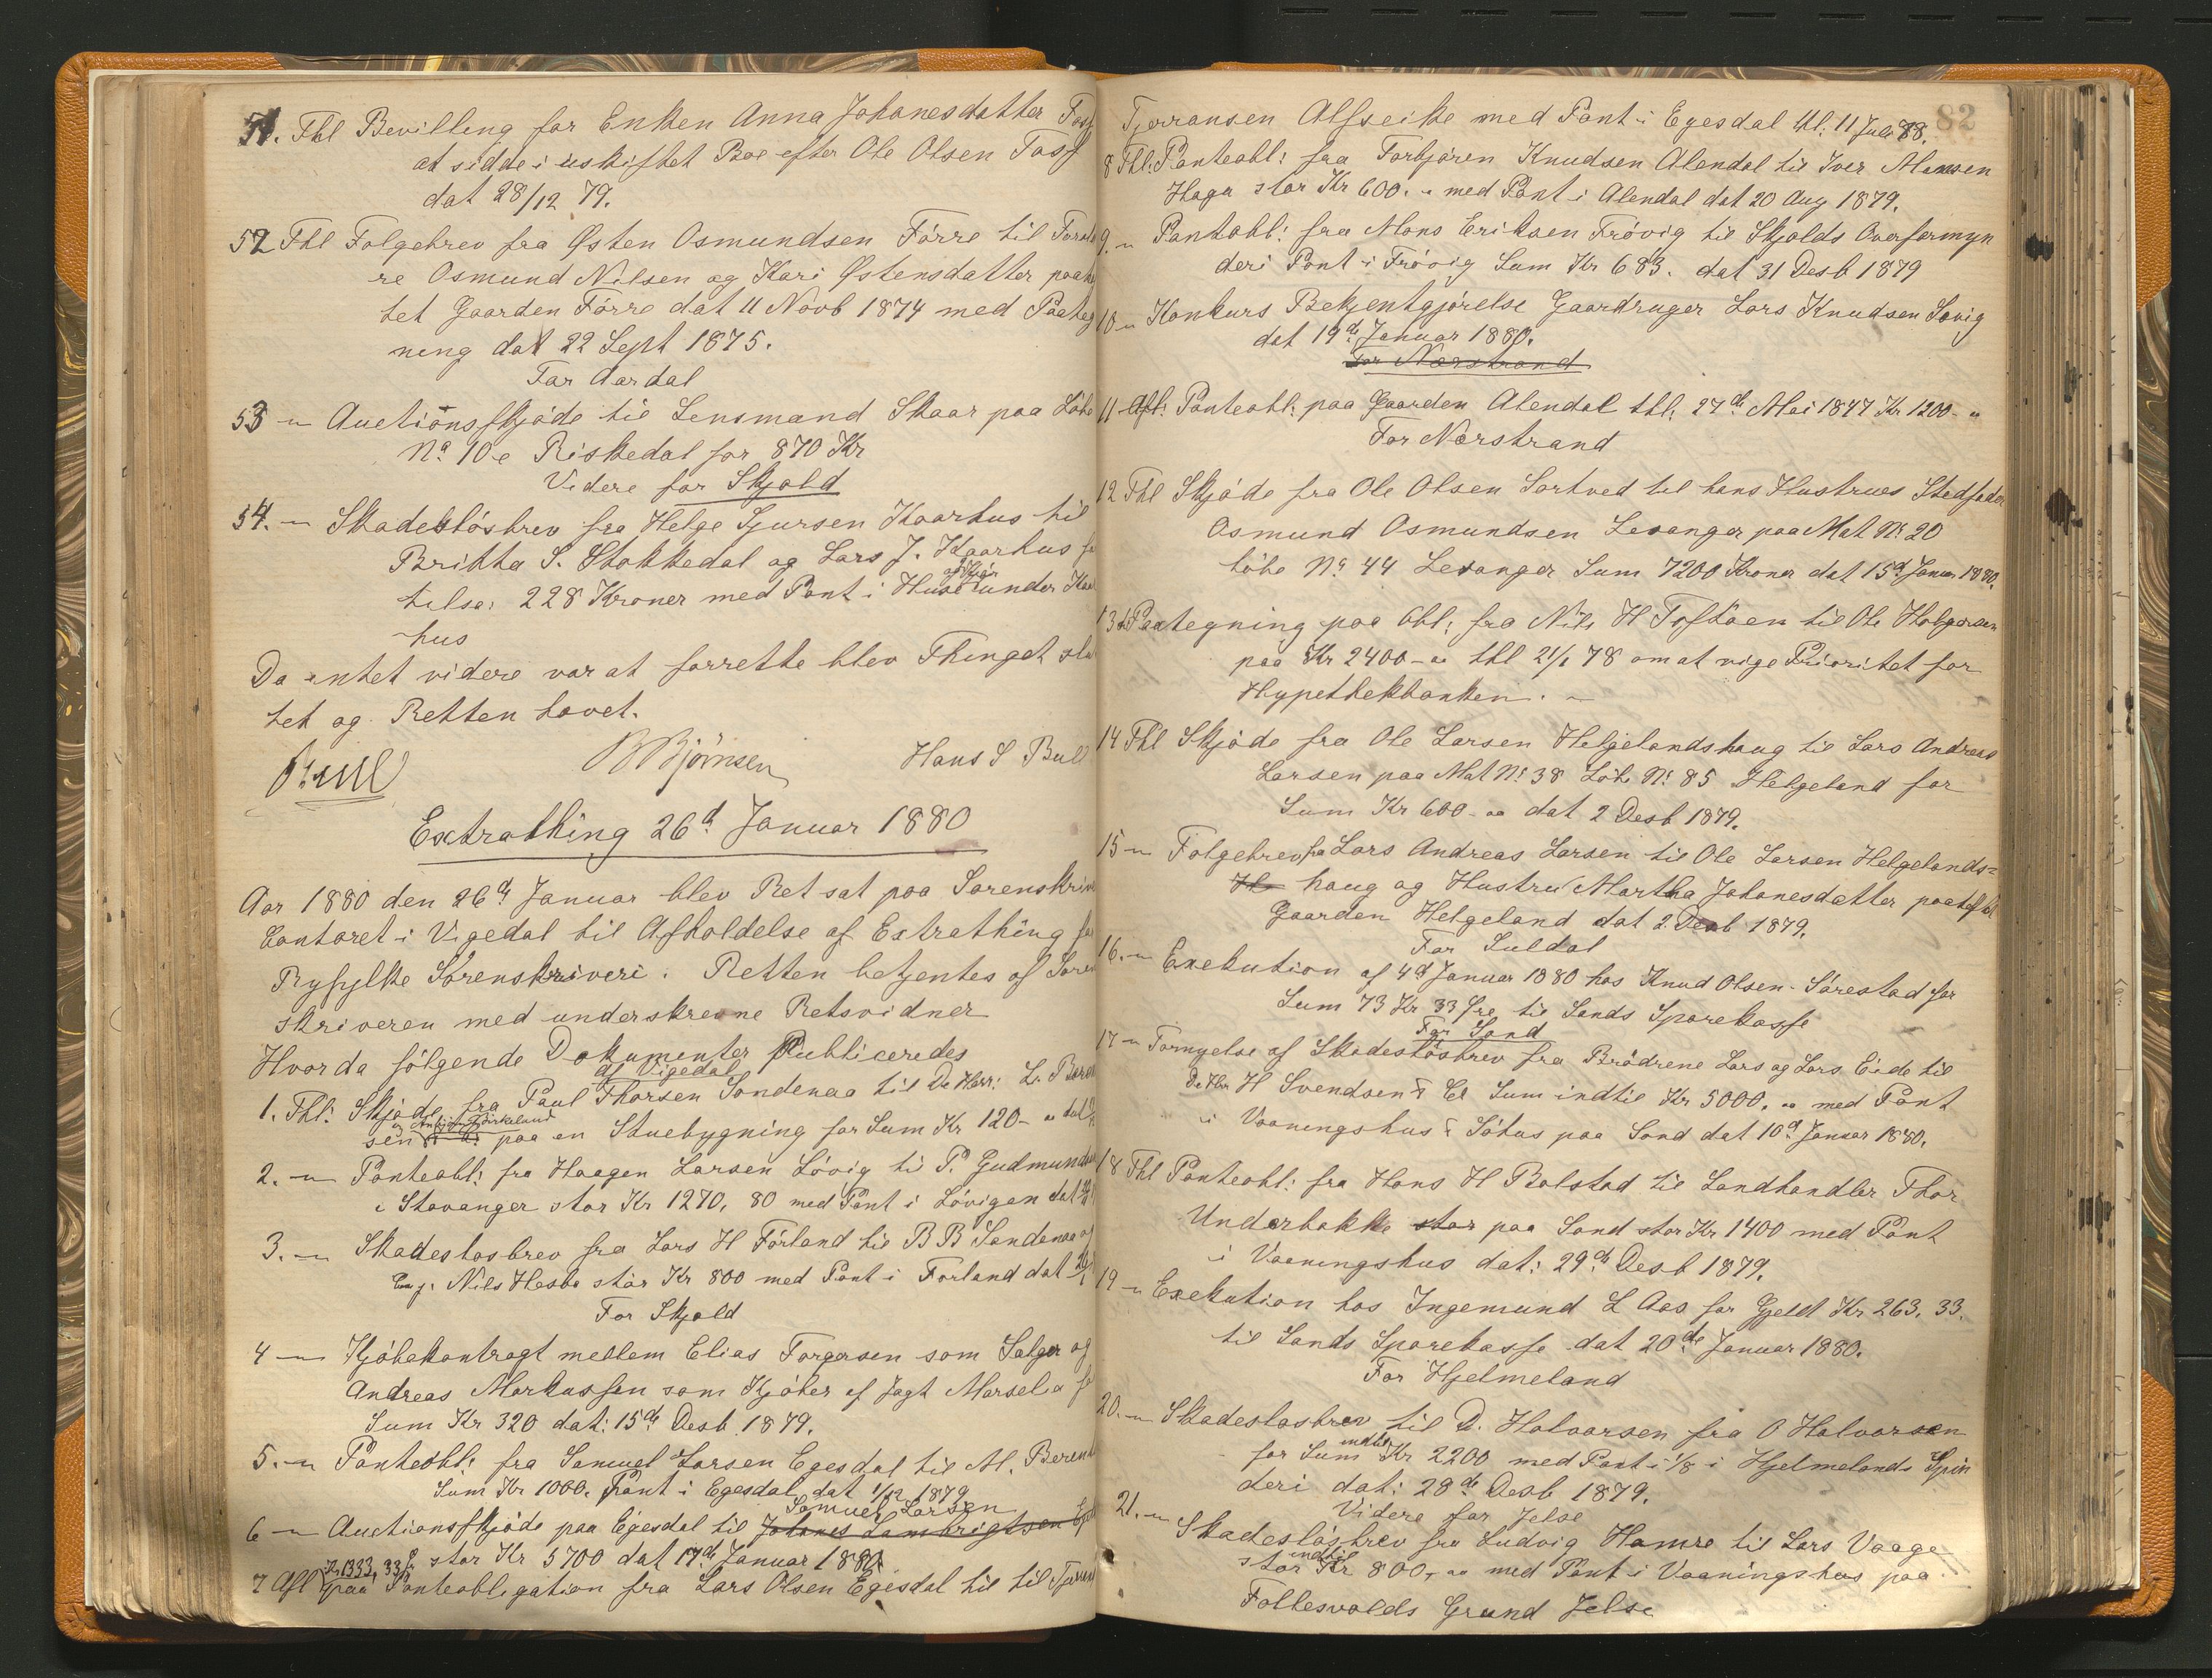 51. Thl Bevilling for Enken Anna Johanesdatter
at sidde i uskiftet Boe efter Ole Olsen
dat 28/12 79.
52 Thl Folgebrev fra Østen Osmundsen Førre til
re Osmund Nilsen og Kari Østensdatter
tet Gaarden Førre dat 11 Novb 1874 med
ning dat 22 Sept 1875.
For Aardal
53 - Auctionsskjøde til Lensmand Skaar paa Løbe
No 10 e Riskedal for 870 Kr
Videre for Skjold
54. - Skadesløsbrev fra Helge Sjursen Kaarhus til
Britha S. Stokkedal og Lars J. Kaarhus
228 Kroner med Pant i Huse under
hus
Da intet videre var at forrette blev Thinget
tet og Retten hævet.
BBjørnsen Hans S Bull
Extrathing 26d Januar 1880
Aar 1880 den 26de Januar blev Ret sat paa
Contoret i Vigedal til Afholdelse af Extrathing
Ryfylke Sorenskriveri. Retten betjentes af
skriveren med underskrevne Retsvidner
Hvorda følgende Dokumenter Publiceredes
af Vigedal
1. Thl: Skjøde fra Paul Thorsen Sondenaa til De Herr: L.
sen paa en Stuebygning for Sum Kr 120-
2. - Panteobl: fra Haagen Larsen Løvig til P. Gudmund
i Stavanger stor Kr 1270, 80 med Pant i Løvigen dat
3. - Skadesløsbrev fra Lars H Førland til B B Sandenaa og
Nils Hesbø stor Kr 800 med Pant i Førland dat
For Skjold
4 - Kjøbekontragt mellem Elias Torgersen som Sælger og
Andreas Markussen som Kjøber af Jagt Marselia
Sum Kr 320 dat: 15de Desb. 1879.
5. - Panteobl: fra Samuel Larsen Egesdal til M.
Sum Kr 1000. Pant i Egesdal dat 1/12 1879
Samuel Larsen
6 - Auctionsskjøde paa Egesdal til Johanes Lambrigtsen
stor Kr 5700 dat 17de Januar 1880
Kr 1333, 33
7 Afl paa Panteobligation fra Lars Olsen Egesdal til
82
Alfseike med Pant i Egesdal thl: 11 Juli 88.
8 Thl: Panteobl: fra Torbjøren Knudsen Alendal til Iver Monsen
Haga stor Kr 600. med Pant i Alendal dat 20 Aug 1879.
9. - Pantobl: fra Mons Eriksen Frøvig til Skjolds Overformyn
deri Pant i Frøvig Sum Kr 683. dat 31 Desb 1879
10 - Konkurs Bekjentgjørelse Gaardbruger Lars Knudsen Søvig
dat 19de Januar 1880.
For Nærstrand
11 Afl: Panteobl: paa Gaarden Alendal thl. 27de Mai 1847 Kr 1200-
For Nærstrand
12 Thl Skjøde fra Ole Olsen Sørtved til hans Hustrues Stedfader
Osmund Osmundsen Levanger paa Mat No 20
Løbe No 44 Levanger Sum 7200 Kroner dat 15d Januar 1880.
13 Paategning paa Obl: fra Nils H Toftøen til Ole Holgersen
paa Kr 2400- thl 21/1 78 om at vige Prioritet for
Hypethekbanken. -
14 Thl Skjøde fra Ole Larsen Helgelandshaug til Lars Andreas
Larsen paa Mat No 38 Løbe No 85 Helgeland for
Sum Kr 600- dat 2 Desb 1879.
15 - Folgebrev fra Lars Andreas Larsen til Ole Larsen Helgelands=
haug og Hustru Martha Johanesdatter
Gaarden Helgeland dat 2. Desb 1879.
For Suldal
16. - Exekution af 4d Januar 1880 hos Knud Olsen Sørestad for
Sum 73 Kr 33 Øre til Sands Sparekasse
For Sand
17 - Fornyelse af Skadesløsbrev fra Brødrene Lars og Lars Eide til
De Hrr H Svendsen & Cl Sum indtil Kr 5000. med Pant
i Vaaningshus & Søhus paa Sand dat 10d Januar 1880.
18 Thl Panteobl: fra Hans H Bolstad til Landhandler Thor
Underbakke stor paa Sand stor Kr 1400 med Pant
i Vaaningshus dat: 29de Desb 1879.
19 - Exekution hos Ingemund L Aas for Gjeld Kr 263, 33.
til Sands Sparekasse dat 20de Januar 1880.
For Hjelmeland
20. - Skadesløsbrev til D. Halvorsen fra O Halvorsen
for Sum indtil Kr 2200 med Pant i 1/8 i Hjelmelands Spin
deri dat: 28de Desb 1879.
Videre for Jelse
21. - Skadesløsbrev fra Ludvig Hamre til Lars Vaage
stor indtil Kr 800, med Pant i Vaaningshus paa
Follesvolds Grund Jelse